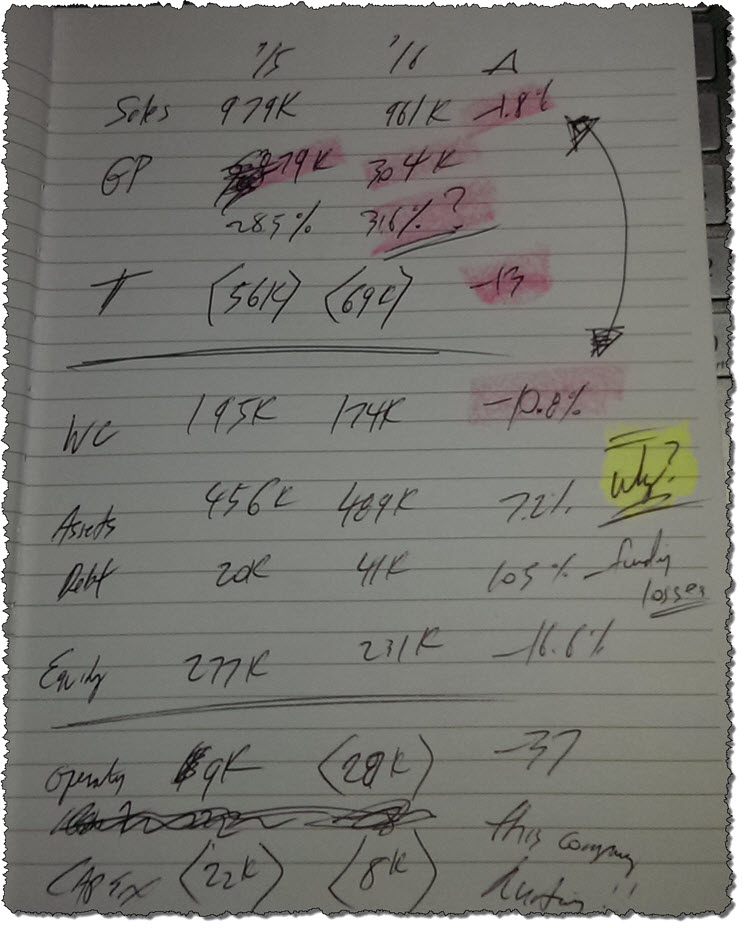 '15 '16 Δ
Sales 979K 961K -1.8%
GP 279K 304K
28.5% 31.6%?
π (56K) (69K) -13
WC 195K 174K -10.8%
Why?
Assets 456K 489K 7.2%
Debt 20K 41K 105% - funding
losses
Equity 277K 231K -16.6%
Operating 9K (28K) -37
this company
CAPEX (22K) (8K) hurting!!